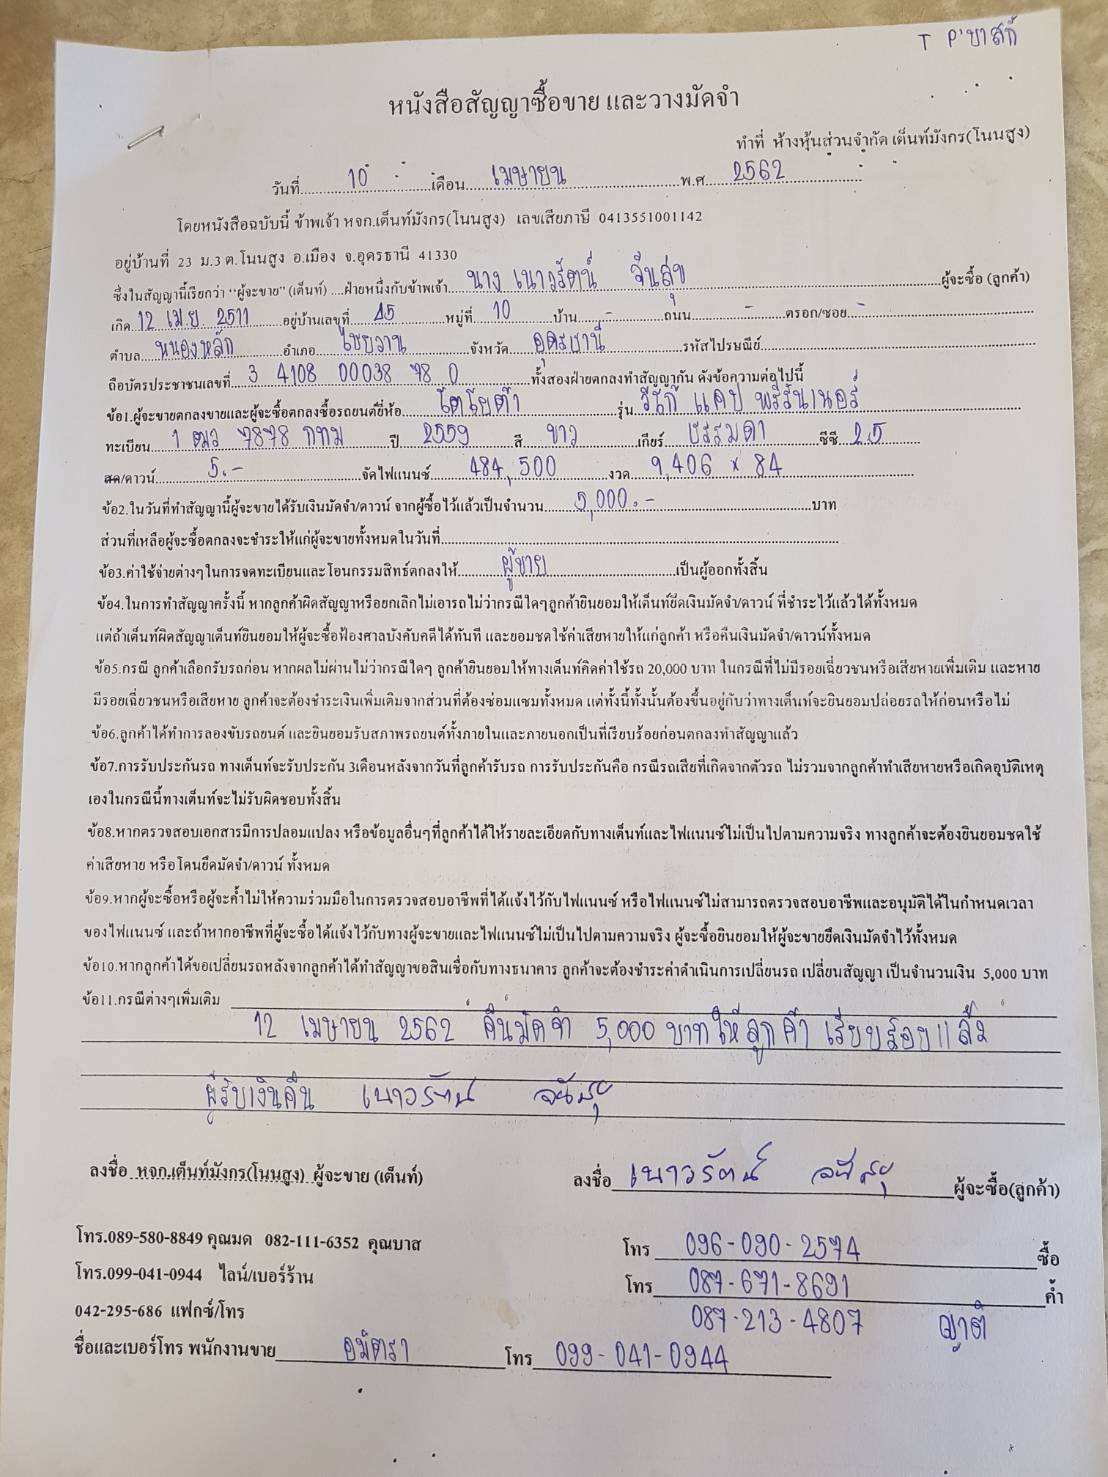 T P'บาสก์
หนังสือสัญญาซื้อขาย และวางมัดจำ
ทำที่ ห้างหุ้นส่วนจำกัด เต็นท์มังกร(โนนสูง)
วันที่ 10 เดือน เมษายน พ.ศ. 2562
โดยหนังสือฉบับนี้ ข้าพเจ้า หจก.เต็นท์มังกร(โนนสูง) เลขเสียภาษี 0413551001142
อยู่บ้านที่ 23 ม.3 ต.โนนสูง อ.เมือง จ.อุดรธานี 41330
ซึ่งในสัญญานี้เรียกว่า "ผู้จะขาย" (เต็นท์) ....ฝ่ายหนึ่งกับข้าพเจ้า นาง เนาวรัตน์ จันสุข ผู้จะซื้อ (ลูกค้า)
เกิด 12 เม.ย. 2511 อยู่บ้านเลขที่ 45 หมู่ที่ 10 บ้าน - ถนน - ตรอก/ซอย -
ตำบล หนองหลัก อำเภอ ไชยวาน จังหวัด อุดรธานี รหัสไปรษณีย์
ถือบัตรประชาชนเลขที่ 3 4108 00038 78 0 ทั้งสองฝ่ายตกลงทำสัญญากัน ดังข้อความต่อไปนี้
ข้อ1.ผู้จะขายตกลงขายและผู้จะซื้อตกลงซื้อรถยนต์ยี่ห้อ โตโยต้า รุ่น วีโก้ แคป พรีรันเนอร์
ทะเบียน 1 ฒว 7878 กทม ปี 2559 สี ขาว เกียร์ ธรรมดา ซีซี 2.5
สด/ดาวน์ 5.- จัดไฟแนนซ์ 484,500 งวด 9,406 x 84
ข้อ2.ในวันที่ทำสัญญานี้ผู้จะขายได้รับเงินมัดจำ/ดาวน์ จากผู้ซื้อไว้แล้วเป็นจำนวน 5,000.- บาท
ส่วนที่เหลือผู้จะซื้อตกลงจะชำระให้แก่ผู้จะขายทั้งหมดในวันที่
ข้อ3.ค่าใช้จ่ายต่างๆในการจดทะเบียนและโอนกรรมสิทธิ์ตกลงให้ ผู้ขาย เป็นผู้ออกทั้งสิ้น
ข้อ4.ในการทำสัญญาครั้งนี้ หากลูกค้าผิดสัญญาหรือยกเลิกไม่เอารถ ไม่ว่ากรณีใดๆลูกค้ายินยอมให้เต็นท์ยึดเงินมัดจำ/ดาวน์ ที่ชำระไว้แล้วได้ทั้งหมด
แต่ถ้าเต็นท์ผิดสัญญาเต็นท์ยินยอมให้ผู้จะซื้อฟ้องศาลบังคับคดีได้ทันที และยอมชดใช้ค่าเสียหายให้แก่ลูกค้า หรือคืนเงินมัดจำ/ดาวน์ทั้งหมด
ข้อ5.กรณี ลูกค้าเลือกรับรถก่อน หากผลไม่ผ่านไม่ว่ากรณีใดๆ ลูกค้ายินยอมให้ทางเต็นท์คิดค่าใช้รถ 20,000 บาท ในกรณีที่ไม่มีรอยเฉี่ยวชนหรือเสียหายเพิ่มเติม และหาย
มีรอยเฉี่ยวชนหรือเสียหาย ลูกค้าจะต้องชำระเงินเพิ่มเติมจากส่วนที่ต้องซ่อมแซมทั้งหมด แต่ทั้งนี้ทั้งนั้นต้องขึ้นอยู่กับว่าทางเต็นท์จะยินยอมปล่อยรถให้ก่อนหรือไม่
ข้อ6.ลูกค้าได้ทำการลองขับรถยนต์ และยินยอมรับสภาพรถยนต์ทั้งภายในและภายนอกเป็นที่เรียบร้อยก่อนตกลงทำสัญญาแล้ว
ข้อ7.การรับประกันรถ ทางเต็นท์จะรับประกัน 3เดือนหลังจากวันที่ลูกค้ารับรถ การรับประกันคือ กรณีรถเสียที่เกิดจากตัวรถ ไม่รวมจากลูกค้าทำเสียหายหรือเกิดอุบัติเหตุ
เองในกรณีนี้ทางเต็นท์จะไม่รับผิดชอบทั้งสิ้น
ข้อ8.หากตรวจสอบเอกสารมีการปลอมแปลง หรือข้อมูลอื่นๆที่ลูกค้าได้ให้รายละเอียดกับทางเต็นท์และไฟแนนซ์ไม่เป็นไปตามความจริง ทางลูกค้าจะต้องยินยอมชดใช้
ค่าเสียหาย หรือโดนยึดมัดจำ/ดาวน์ ทั้งหมด
ข้อ9.หากผู้จะซื้อหรือผู้จะค้ำไม่ให้ความร่วมมือในการตรวจสอบอาชีพที่ได้แจ้งไว้กับไฟแนนซ์ หรือไฟแนนซ์ไม่สามารถตรวจสอบอาชีพและอนุมัติได้ในกำหนดเวลา
ของไฟแนนซ์ และถ้าหากอาชีพที่ผู้จะซื้อได้แจ้งไว้กับทางผู้จะขายและไฟแนนซ์ไม่เป็นไปตามความจริง ผู้จะซื้อยินยอมให้ผู้จะขายยึดเงินมัดจำไว้ทั้งหมด
ข้อ10.หากลูกค้าได้ขอเปลี่ยนรถหลังจากลูกค้าได้ทำสัญญาขอสินเชื่อกับทางธนาคาร ลูกค้าจะต้องชำระค่าดำเนินการเปลี่ยนรถ เปลี่ยนสัญญา เป็นจำนวนเงิน 5,000 บาท
ข้อ11.กรณีต่างๆเพิ่มเติม
12 เมษายน 2562 คืนมัดจำ 5,000 บาทให้ลูกค้า เรียบร้อยแล้ว
ผู้รับเงินคืน เนาวรัตน์ จันสุข
ลงชื่อ หจก.เต็นท์มังกร(โนนสูง) ผู้จะขาย (เต็นท์)
ลงชื่อ เนาวรัตน์ จันสุข ผู้จะซื้อ(ลูกค้า)
โทร.089-580-8849 คุณมด 082-111-6352 คุณบาส
โทร 096-090-2574 ซื้อ
โทร.099-041-0944 ไลน์/เบอร์ร้าน
โทร 087-671-8691 ค้ำ
042-295-686 แฟกซ์/โทร
087-213-4807 ญาติ
ชื่อและเบอร์โทร พนักงานขาย อมิตรา โทร 099-041-0944